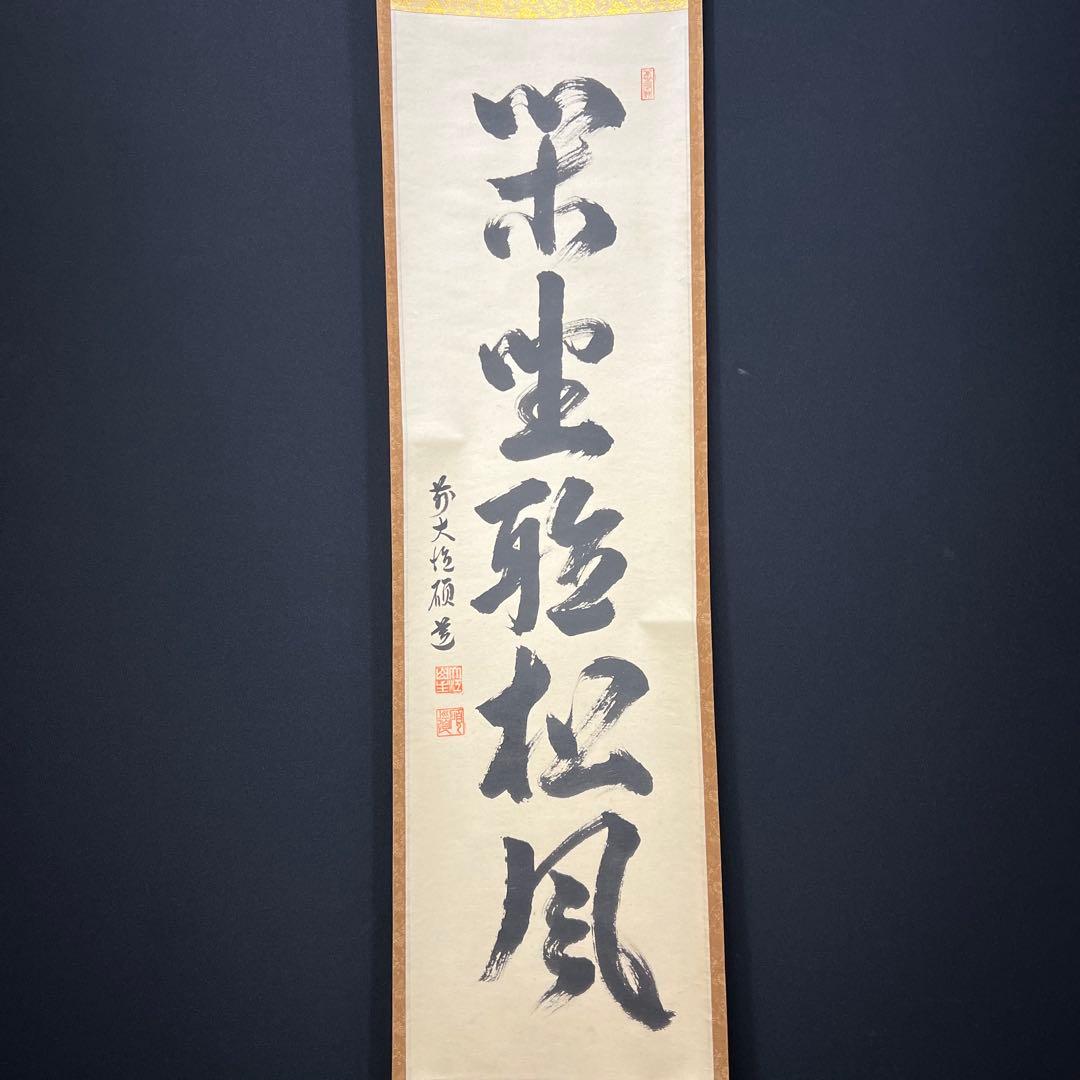 閑坐聴松風
前大徳碩道